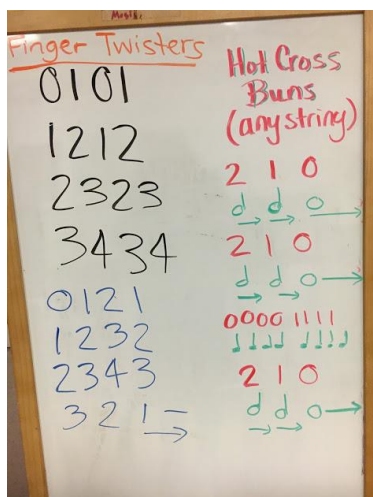 Finger Twisters
0101
1212
2323
3434
0121
1232
2343
321–
Hot Cross
Buns
(any string)
2 1 0
2 1 0
0000 1111
2 1 0